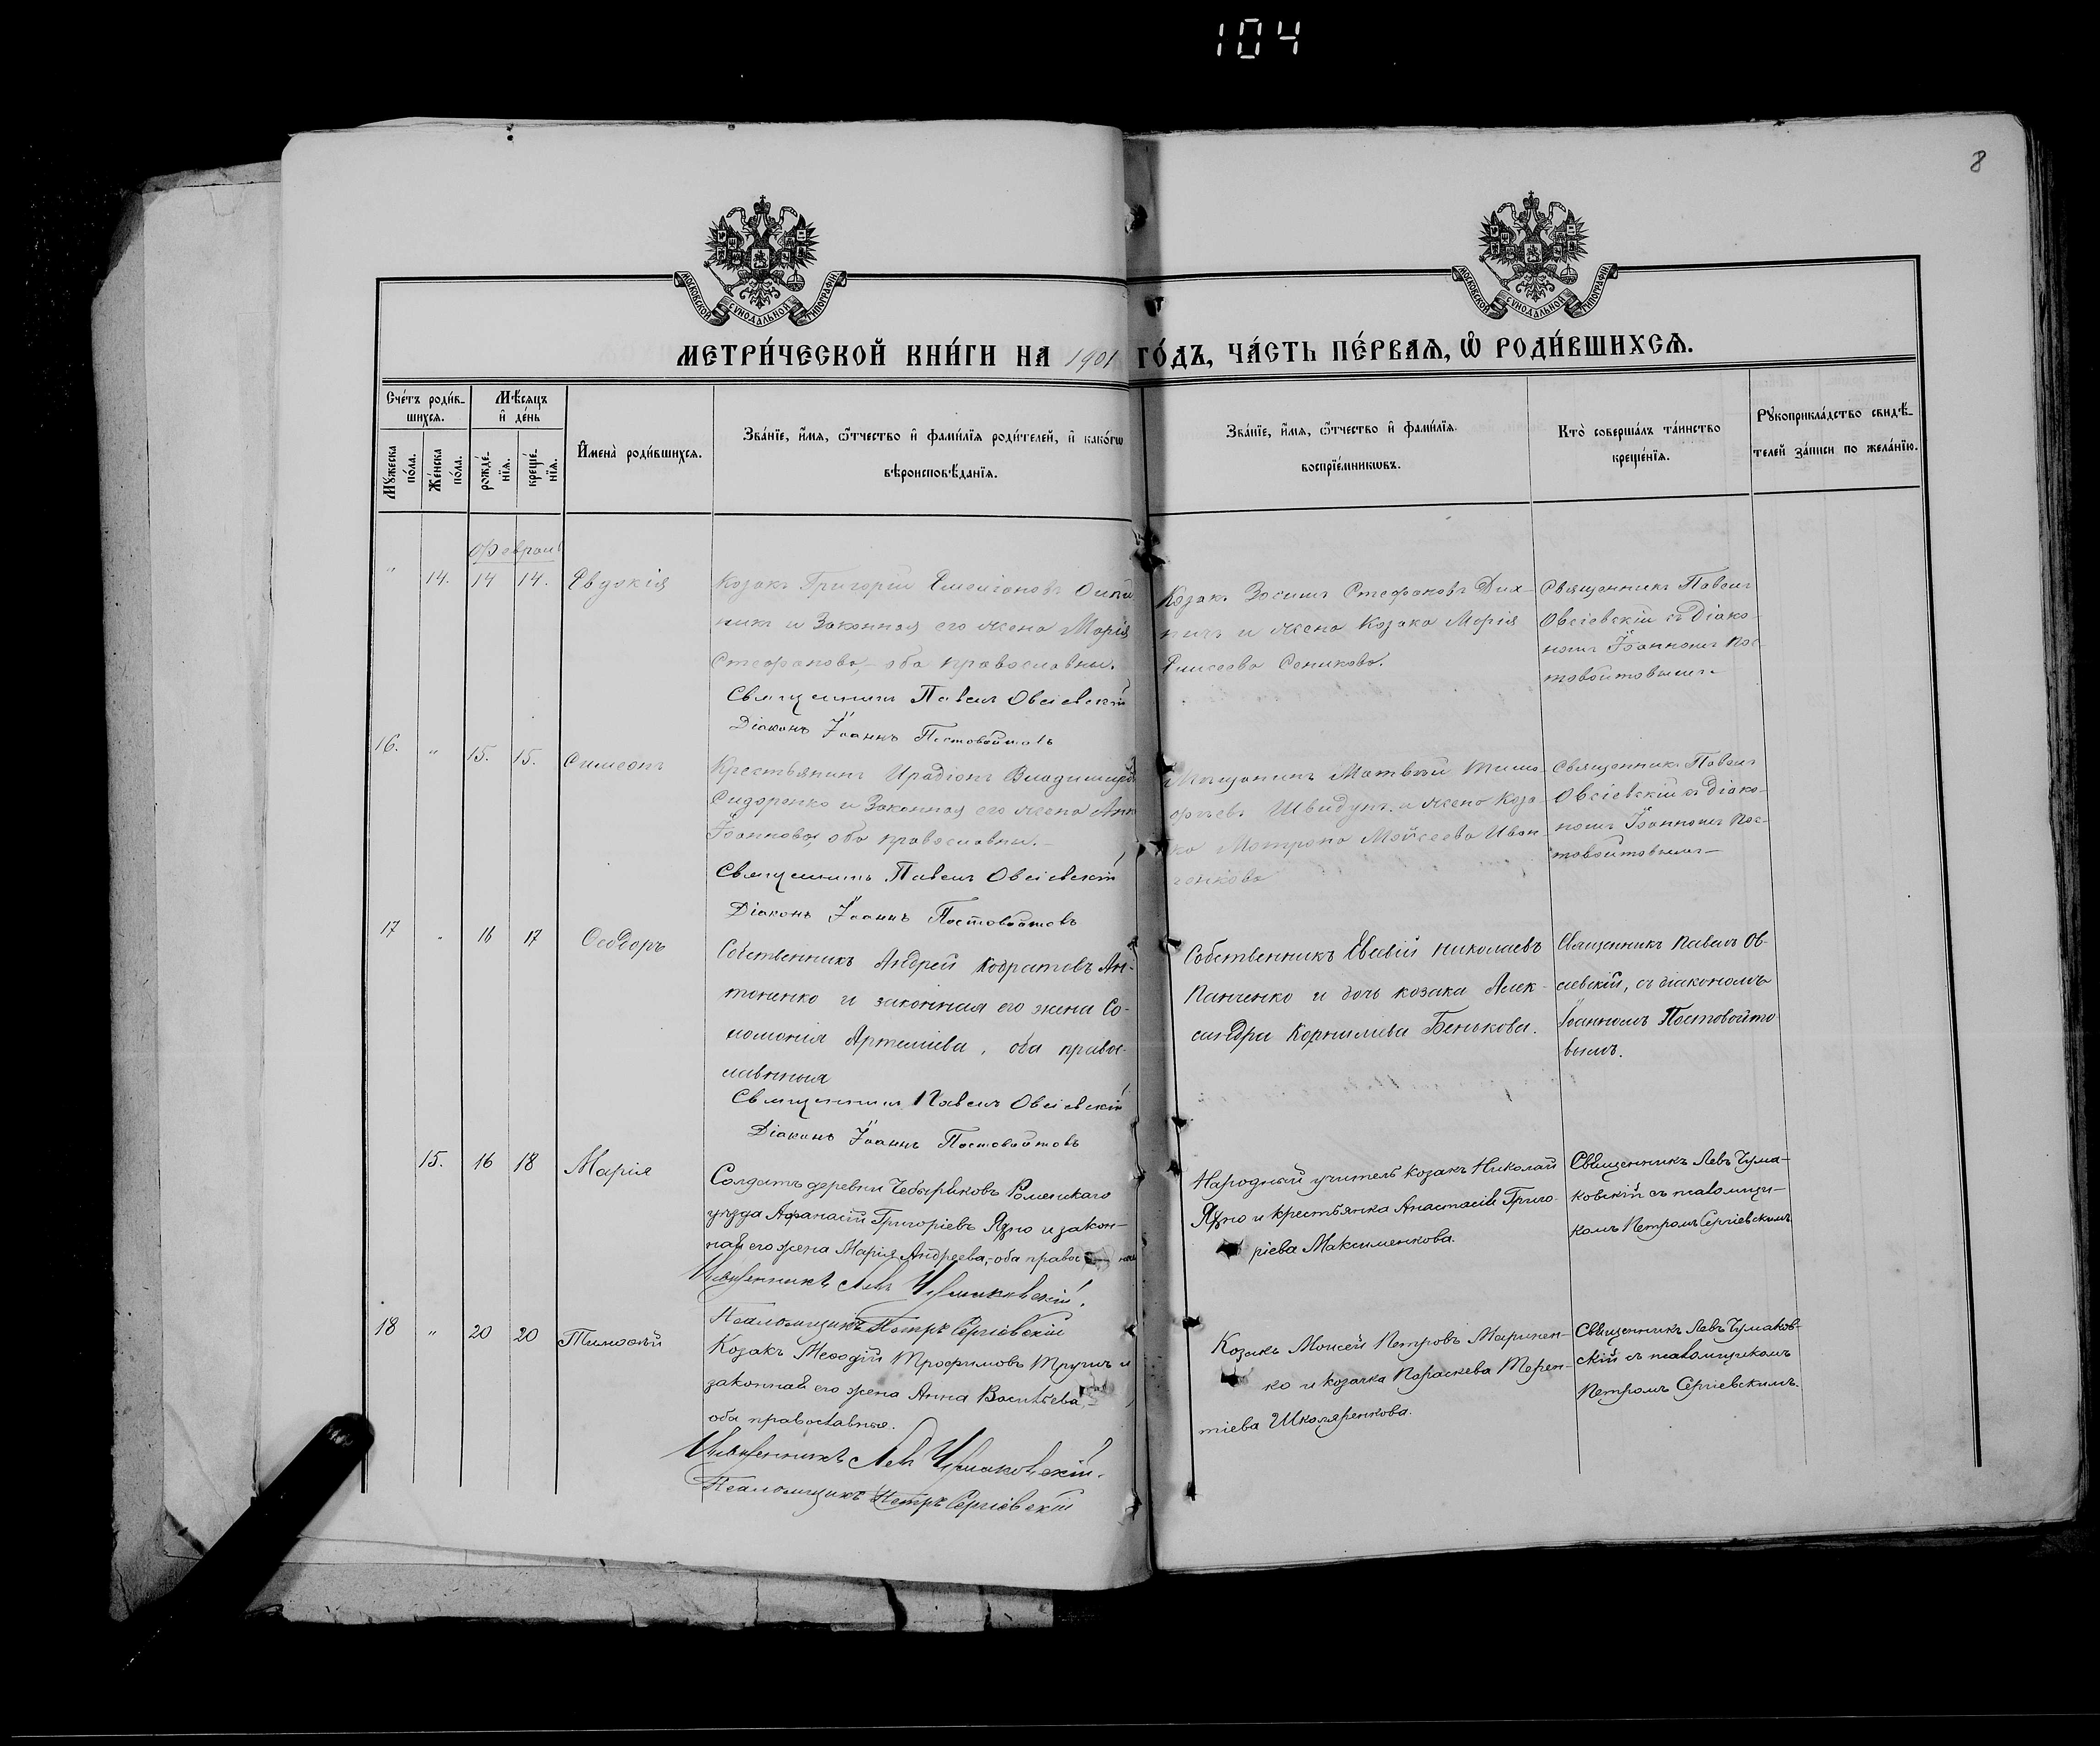 104
8
МОСКОВСКОЙ СѴНОДАЛЬНОЙ ТИПОГРАФІИ
МОСКОВСКОЙ СѴНОДАЛЬНОЙ ТИПОГРАФІИ
МЕТРИ́ЧЕСКОЙ КНИ́ГИ НА 1901 ГО́ДЪ, ЧА́СТЬ ПЕ́РВАѦ, Ѡ РОДИ́ВШИХСѦ.
Сче́тъ роди́в-
шихся.
Мѣ́сяцъ
и де́нь
Му́жеска
по́ла.
Же́нска
по́ла.
рожде́-
нїя.
креще́-
нїя.
Имена̀ роди́вшихся.
Зва́нїе, и́мя, ѻ́тчество и фами́лїя роди́телей, и како́гѡ
вѣроисповѣ́данїя.
Зва́нїе, и́мя, ѻ́тчество и фами́лїя.
воспрїе́мникѡвъ.
Кто̀ соверша́лъ та́инство
креще́нїя.
Рꙋкоприкла́дство свидѣ́-
телей за́писи по жела́нїю.
Февраль
" 14. 14 14. Евдокія
Козакъ Григорій Емеліановъ
никъ и Законная его жена Марія
Стефанова, - оба православны.
Священникъ Павелъ Овсіевскій
Діаконъ Іоаннъ Постовойтовъ
Козакъ Зосимъ Стефановъ Дих-
ничъ и жена Козака Марія
Елисеева Сеникова.
Священникъ Павелъ
Овсіевскій съ Діако-
номъ Іоанномъ Пос-
товойтовымъ.
16. " 15. 15. Симеонъ
Крестьянинъ Иродіонъ Владиміровъ
Сидоренко и Законная его жена Анна
Іоаннова, оба православны. -
Священникъ Павелъ Овсіевскій
Діаконъ Іоаннъ Постовойтовъ
Мѣщанинъ Матвѣй Тимо-
фѣевъ Швидунъ и жена Коза-
ка Матрона Мойсеева Иван-
ченкова
Священникъ Павелъ
Овсіевскій съ Діако-
номъ Іоанномъ Пос-
товойтовымъ -
17 " 16 17 Ѳеодоръ
Собственникъ Андрей Кодратовъ Ан-
тоненко и законная его жена Со-
ломонія Артеміева, оба правос-
лавныя
Священникъ Павелъ Овсіевскій
Діаконъ Іоаннъ Постовойтовъ
Собственникъ Евсевій Николаевъ
Панченко и дочь козака Алек-
сандра Корнилиева Бенькова.
Священникъ Павелъ Ов-
сіевскій, съ діакономъ
Іоанномъ Постовойто
вымъ.
15. 16 18 Марія
Солдатъ деревни Чеберяковъ Роменскаго
уѣзда Аѳанасій Григоріевъ Яхно и закон-
ная его жена Марія Андреева, - оба правос
Священникъ Левъ Чумаковскій.
Псаломщикъ Петръ Сергіевскій
Народный учитель козакъ Николай
Яхно и крестьянка Анастасія Григо-
ріева Максименкова.
Священникъ Левъ Чума-
ковскій съ псаломщи-
комъ Петромъ Сергіевскимъ
18 " 20 20 Тимоѳей
Козакъ Меѳодій Трофимовъ Тручъ и
законная его жена Анна Васильева,
оба православные.
Священникъ Левъ Чумаковскій.
Псаломщикъ Петръ Сергіевскій
Козакъ Моисей Петровъ Маринен-
ко и козачка Параскева Терен-
тіева Школяренкова.
Священникъ Левъ Чумаков-
скій съ псаломщикомъ
Петромъ Сергіевскимъ.